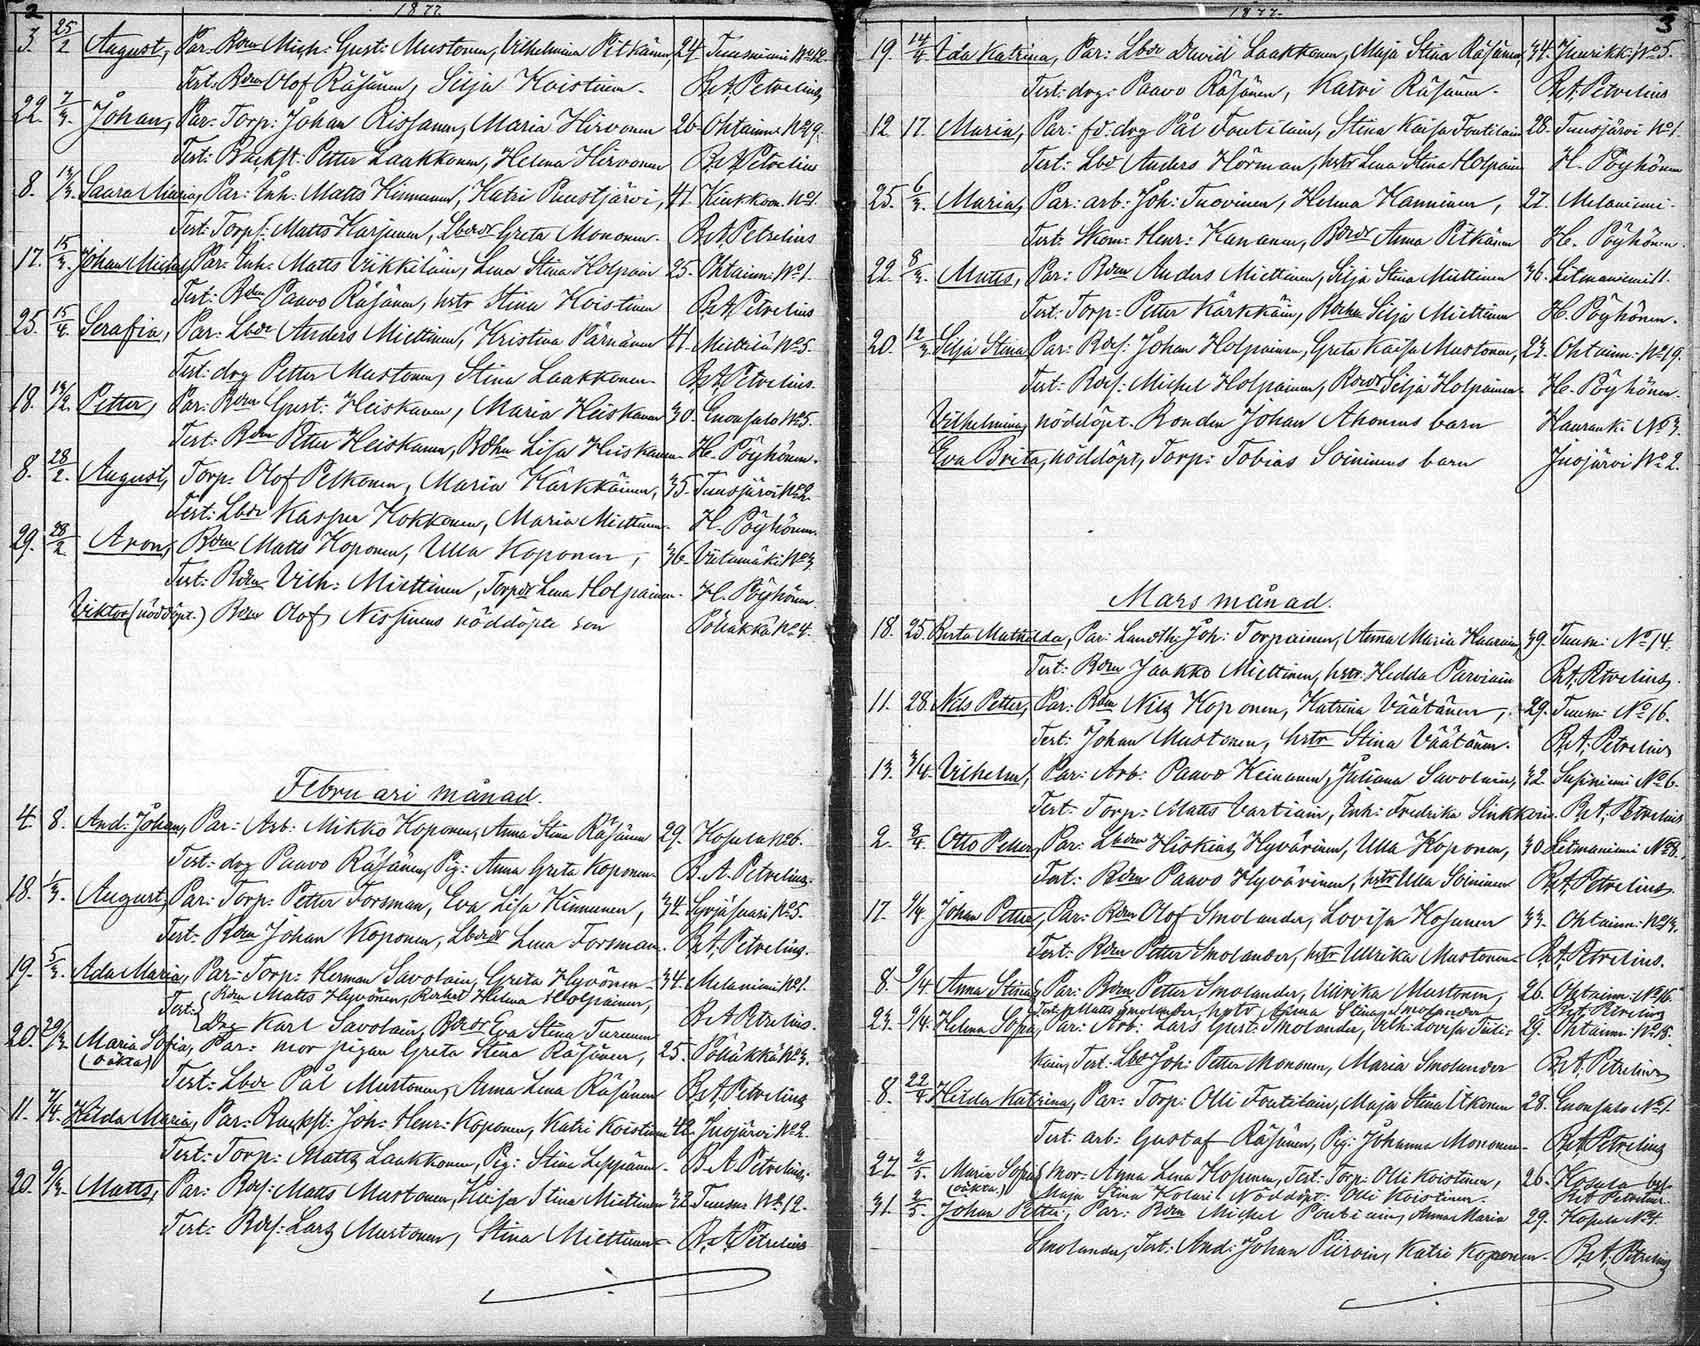 2
1877.
3. 25/2 August, Par: Bdm Mich: Gust: Mustonen, Vilhelmina Pitkänen, 24. Tuusniemi No 12.
Test: Bdm Olof Räsänen, Silja Koistinen. B. A. Petrelius
22. 7/3. Johan, Par: Torp: Johan Rissanen, Maria Hirvonen 26. Ohtaime No 19.
Test: Petter Laakkonen, Helena Hirvonen B. A. Petrelius
8. Saara Maria, Par: Inh: Matts Kinnunen, Katri Puustjärvi, 41. Kiukkoon. No 1.
Test: Torp: Matts Karjunen, Greta Mononen. B. A. Petrelius
17. 15/3. Johan Michel, Par: Inh: Matts Vikkiläin, Lena Stina Holpain 25. Ohtaim: No 1.
Test: Bdm Paavo Räsänen, hstr Stina Koistinen B. A. Petrelius
25. 15/4. Serafia, Par: Lbde Anders Miettinen, Kristina Pärnänen 41. Miettilä No 5.
Test: drg Petter Mustonen, Stina Laakkonen. B. A. Petrelius.
18. Petter, Par: Bdm Gust: Heiskanen, Maria Heiskanen 30. Enonsalo No 5.
Test: Bdm Petter Heiskanen, Lisa Heiskanen H. Pöyhönen.
8. 28/2. August, Torp. Olof Pelkonen, Maria Kärkkäinen, 35. Tuusjärvi No 2.
Test: Lbde Kasper Kokkonen, Maria Miettinen. H. Pöyhönen.
29. 28/2 Aron, Bdm Matts Koponen, Ulla Koponen, 36. Viitamäki No 3.
Test: Bdm Vilh: Miettinen, Lena Holpainen. H. Pöyhönen.
Viktor (nöddöpt.) Bdm Olof Nissinens nöddöpte son Pölläkkä No 4.
Februari månad.
4. 8. And: Johan, Par: Arb: Mikko Koponen, Anna Stina Räsänen 29. Kosula No 6.
Test: drg Paavo Räsänen, Pig: Anna Greta Koponen. B. A. Petrelius.
18. 1/3. August, Par: Torp: Petter Forsman, Eva Lisa Kinnunen, 34. Syvjäsaari No 5.
Test: Bdm Johan Koponen, Lena Forsman. B. A. Petrelius.
19. 5/3. Ada Maria, Par: Torp: Herman Savolain, Greta Hyvönen. 34. Melaniemi No 1.
Test: Bdm Matts Hyvönen, Helena Holpainen,
Drg Karl Savolain, Eva Stina Turunen B. A. Petrelius.
20. Maria Sofia, Par: mor pigan Greta Stina Räsänen, 25. Pölläkkä No 3.
(oäkta) Test: Lbde Pål Mustonen, Anna Lena Räsänen B. A. Petrelius
11. 2/4. Hilda Maria, Par: Joh: Henr: Koponen, Katri Koistinen 42. Juojärvi No 2.
Test: Torp: Matts Laakkonen, Pig: Stina Leppänen. B. A. Petrelius.
20. 9/3. Matts, Par: Matts Mustonen, Stina Miettinen 32. Tuusn: No 12.
Test: Lars Mustonen, Stina Miettinen B. A. Petrelius
3
1877.
19. 14/4. Ida Katrina, Par: Lbde David Laakkonen, Maja Stina Räsänen, 34. Juurikk: No 5.
Test: drg: Paavo Räsänen, Katri Räsänen. B. A. Petrelius
12. 17. Maria, Par: fd. drg Pål Toutilain, Stina Kaisa Toutilain 28. Tuusjärvi No 1.
Test: Lbd Anders Hörman, hstr Lena Stina Holpain H. Pöyhönen
25. 6/3. Maria, Par: arb: Joh: Tuovinen, Helena Hanninen, 27. Melaniemi.
Test: Skom: Henr: Kananen, Anna Pitkänen H. Pöyhönen.
22. 8/3. Matts, Par: Bdm Anders Miettinen, Silja Stina Miettinen 36. Litmaniemi 11.
Test: Torp: Petter Kärkkäin, Silja Miettinen H. Pöyhönen.
20. 12/3 Silja Stina, Par: Johan Holpainen, Greta Kaisa Mustonen, 23. Ohtaim: No 19.
Test: Michel Holpainen, Silja Holpainen. H. Pöyhönen.
Vilhelmina, nöddöpt. Bonden Johan Ahonens barn Hauranki No 3.
Eva Brita, nöddöpt, Torp: Tobias Soininens barn Juojärvi No 2.
Mars månad.
18. 25. Berta Mathilda, Par: Joh: Torpainen, Anna Maria 39. Tuusn: No 14.
Test: Bdm Jaakko Miettinen, hstr: Hedda Parviain B. A. Petrelius.
11. 28. Nils Petter, Par: Bdm Nils Koponen, Katrina Väätänen, 29. Tuusn: No 16.
Test: Johan Mustonen, hstr Stina Väätänen. B. A. Petrelius
13. 3/4. Vilhelm, Par: Arb: Paavo Keinanen, Juliana Savolain, 32. Susiniemi No 6.
Test: Torp: Matts Vartiain, Inh: Fredrika Sinkkoin. B. A. Petrelius
2. 8/4 Otto Petter, Par: Hiskias Hyvärinen, Ulla Koponen, 30. Litmaniemi No 8.
Test: Bdm Paavo Hyvärinen, hstr Ulla Soininen B. A. Petrelius.
17. 9/4. Johan Petter, Par: Bdm Olof Smolander, Lovisa Kosunen 33. Ohtaim: No 13.
Test: Bdm Petter Smolander, hstr Ullrika Mustonen. B. A. Petrelius.
8. 9/4. Anna Stina, Par: Bdm Peter Smolander, Ullrika Mustonen, 26. Ohtaim: No 16.
Test: Matts Smolander, hstr Anna Stina Smolander B. A. Petrelius
23. 9/4. Helena Sofia, Par: Arb: Lars Gust: Smolander, Vilh: Lovisa 29. Ohtaim: No 18.
kain, Test: Lbde Joh: Petter Mononen, Maria Smolander B. A. Petrelius
8. 22/4 Hilda Katrina, Par: Torp: Olli Toutilain, Maja Stina Itkonen 28. Enonsalo No 1.
Test: arb: Gustaf Räsänen, Pig: Johanna Mononen. B. A. Petrelius
27. 2/5. Maria Sofia, mor: Anna Lena Koponen, Test: Torp: Olli Koistinen, 26. Kosula by.
(oäkta) Maja Stina Nöddöpt: Olli Koistinen. B. A. Petrelius.
31. 2/5. Johan Petter, Par: Bdm Michel Poutiain, Anna Maria 29. Kosula No 4.
Smolander, Test: And: Johan Piirain, Katri Koponen. B. A. Petrelius